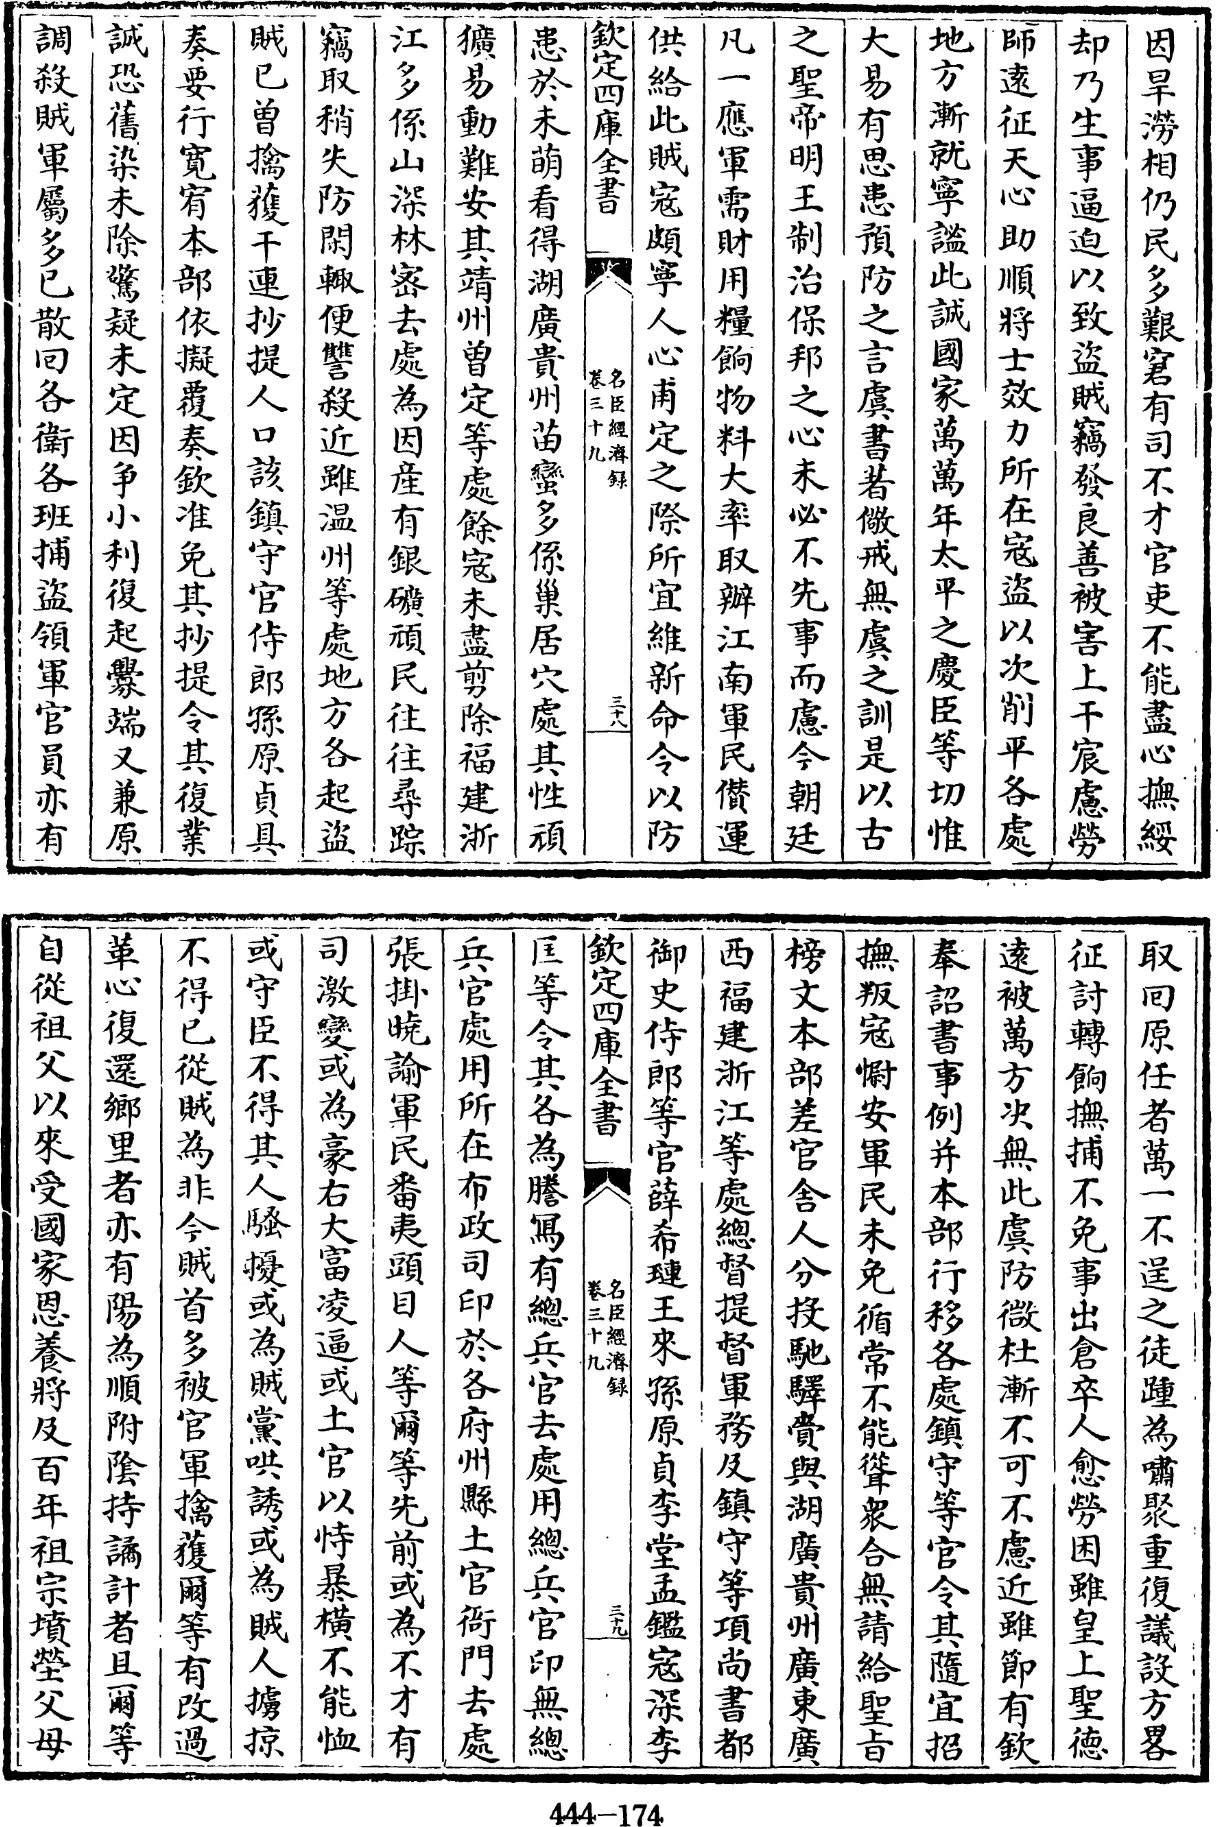 因旱澇相仍民多艱窘有司不才官吏不能盡心撫綏
却乃生事逼迫以致盜賊竊發良善被害上干宸慮勞
師逺征天心助順將士效力所在宼盜以次削平各處
地方漸就寧謐此誠國家萬萬年太平之慶臣等切惟
大易有思患預防之言虞書著儆戒無虞之訓是以古
之聖帝明王制治保邦之心未必不先事而慮今朝廷
凡一應軍需財用糧餉物料大率取辦江南軍民儹運
供給此賊宼頗寧人心甫定之際所宜維新命令以防
欽定四庫全書
名臣經濟録
卷三十九
三十八
患於未萌看得湖廣貴州苗蠻多係巢居穴處其性頑
獷易動難安其靖州曽定等處餘宼未盡剪除福建浙
江多係山深林宻去處為因産有銀礦頑民往往尋踪
竊取稍失防閑輙便讐殺近雖温州等處地方各起盜
賊已曽擒獲干連抄提人口該鎮守官侍郎孫原貞具
奏要行寛宥本部依擬覆奏欽准免其抄提令其復業
誠恐舊染未除驚疑未定因爭小利復起釁端又兼原
調殺賊軍屬多已散回各衛各班捕盜領軍官員亦有
取回原任者萬一不逞之徒踵為嘯聚重復議設方畧
征討轉餉撫捕不免事出倉卒人愈勞困雖皇上聖德
逺被萬方决無此虞防微杜漸不可不慮近雖節有欽
奉詔書事例并本部行移各處鎮守等官令其隨宜招
撫叛宼慰安軍民未免循常不能聳衆合無請給聖旨
榜文本部差官舎人分投馳驛賫與湖廣貴州廣東廣
西福建浙江等處總督提督軍務及鎮守等項尚書都
御史侍郎等官薛希璉王來孫原貞李堂孟鑑宼深李
欽定四庫全書
名臣經濟録
卷三十九
三十九
匡等令其各為謄寫有總兵官去處用總兵官印無總
兵官處用所在布政司印於各府州縣土官衙門去處
張掛曉諭軍民番夷頭目人等爾等先前或為不才有
司激變或為豪右大富凌逼或土官以恃暴橫不能恤
或守臣不得其人騷擾或為賊黨哄誘或為賊人擄掠
不得已從賊為非今賊首多被官軍擒獲爾等有改過
革心復還鄉里者亦有陽為順附陰持譎計者且爾等
自從祖父以來受國家恩養將及百年祖宗墳塋父母
444-174